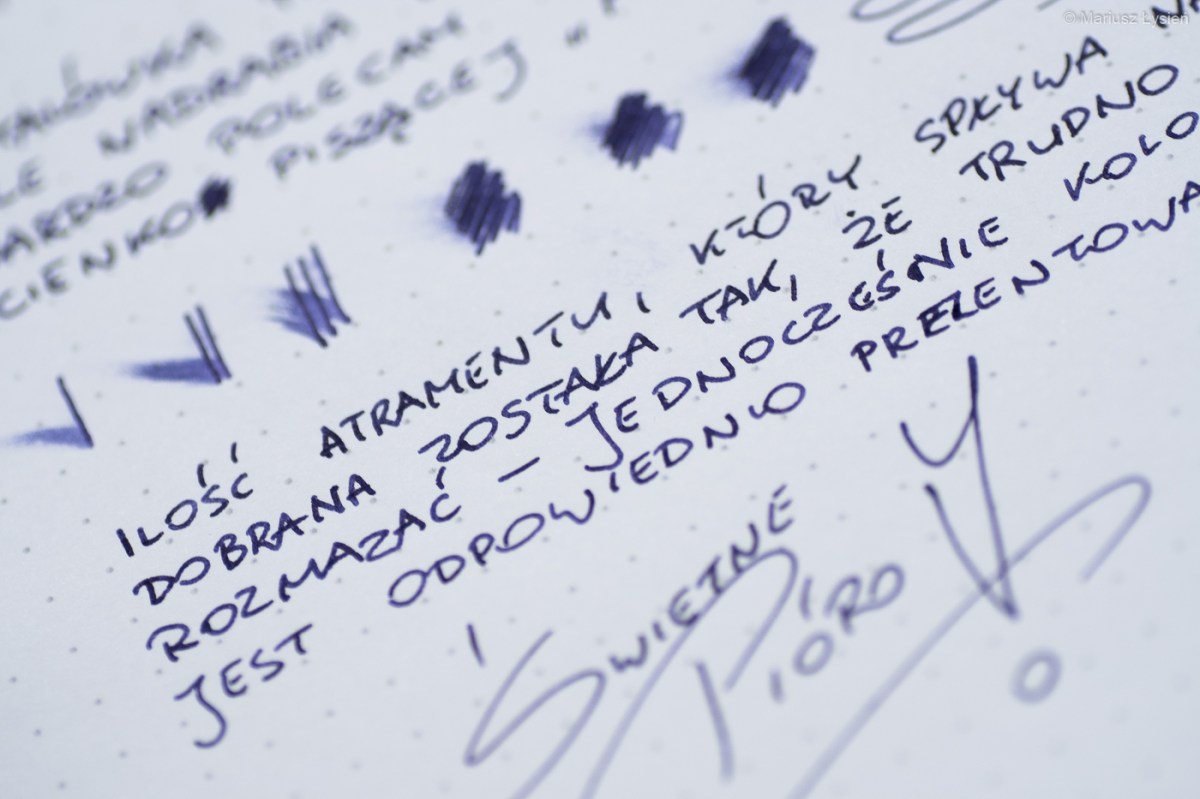 © Mariusz Łysień
NADRABIA
POLECAM
CIENKO PISZĄCEJ
ILOŚĆ ATRAMENTU, KTÓRY SPŁYWA
DOBRANA ZOSTAŁA TAK, ŻE TRUDNO
ROZMAZAĆ – JEDNOCZEŚNIE KOLO
JEST ODPOWIEDNIO PREZENTOWA
ŚWIETNE
PIÓRO